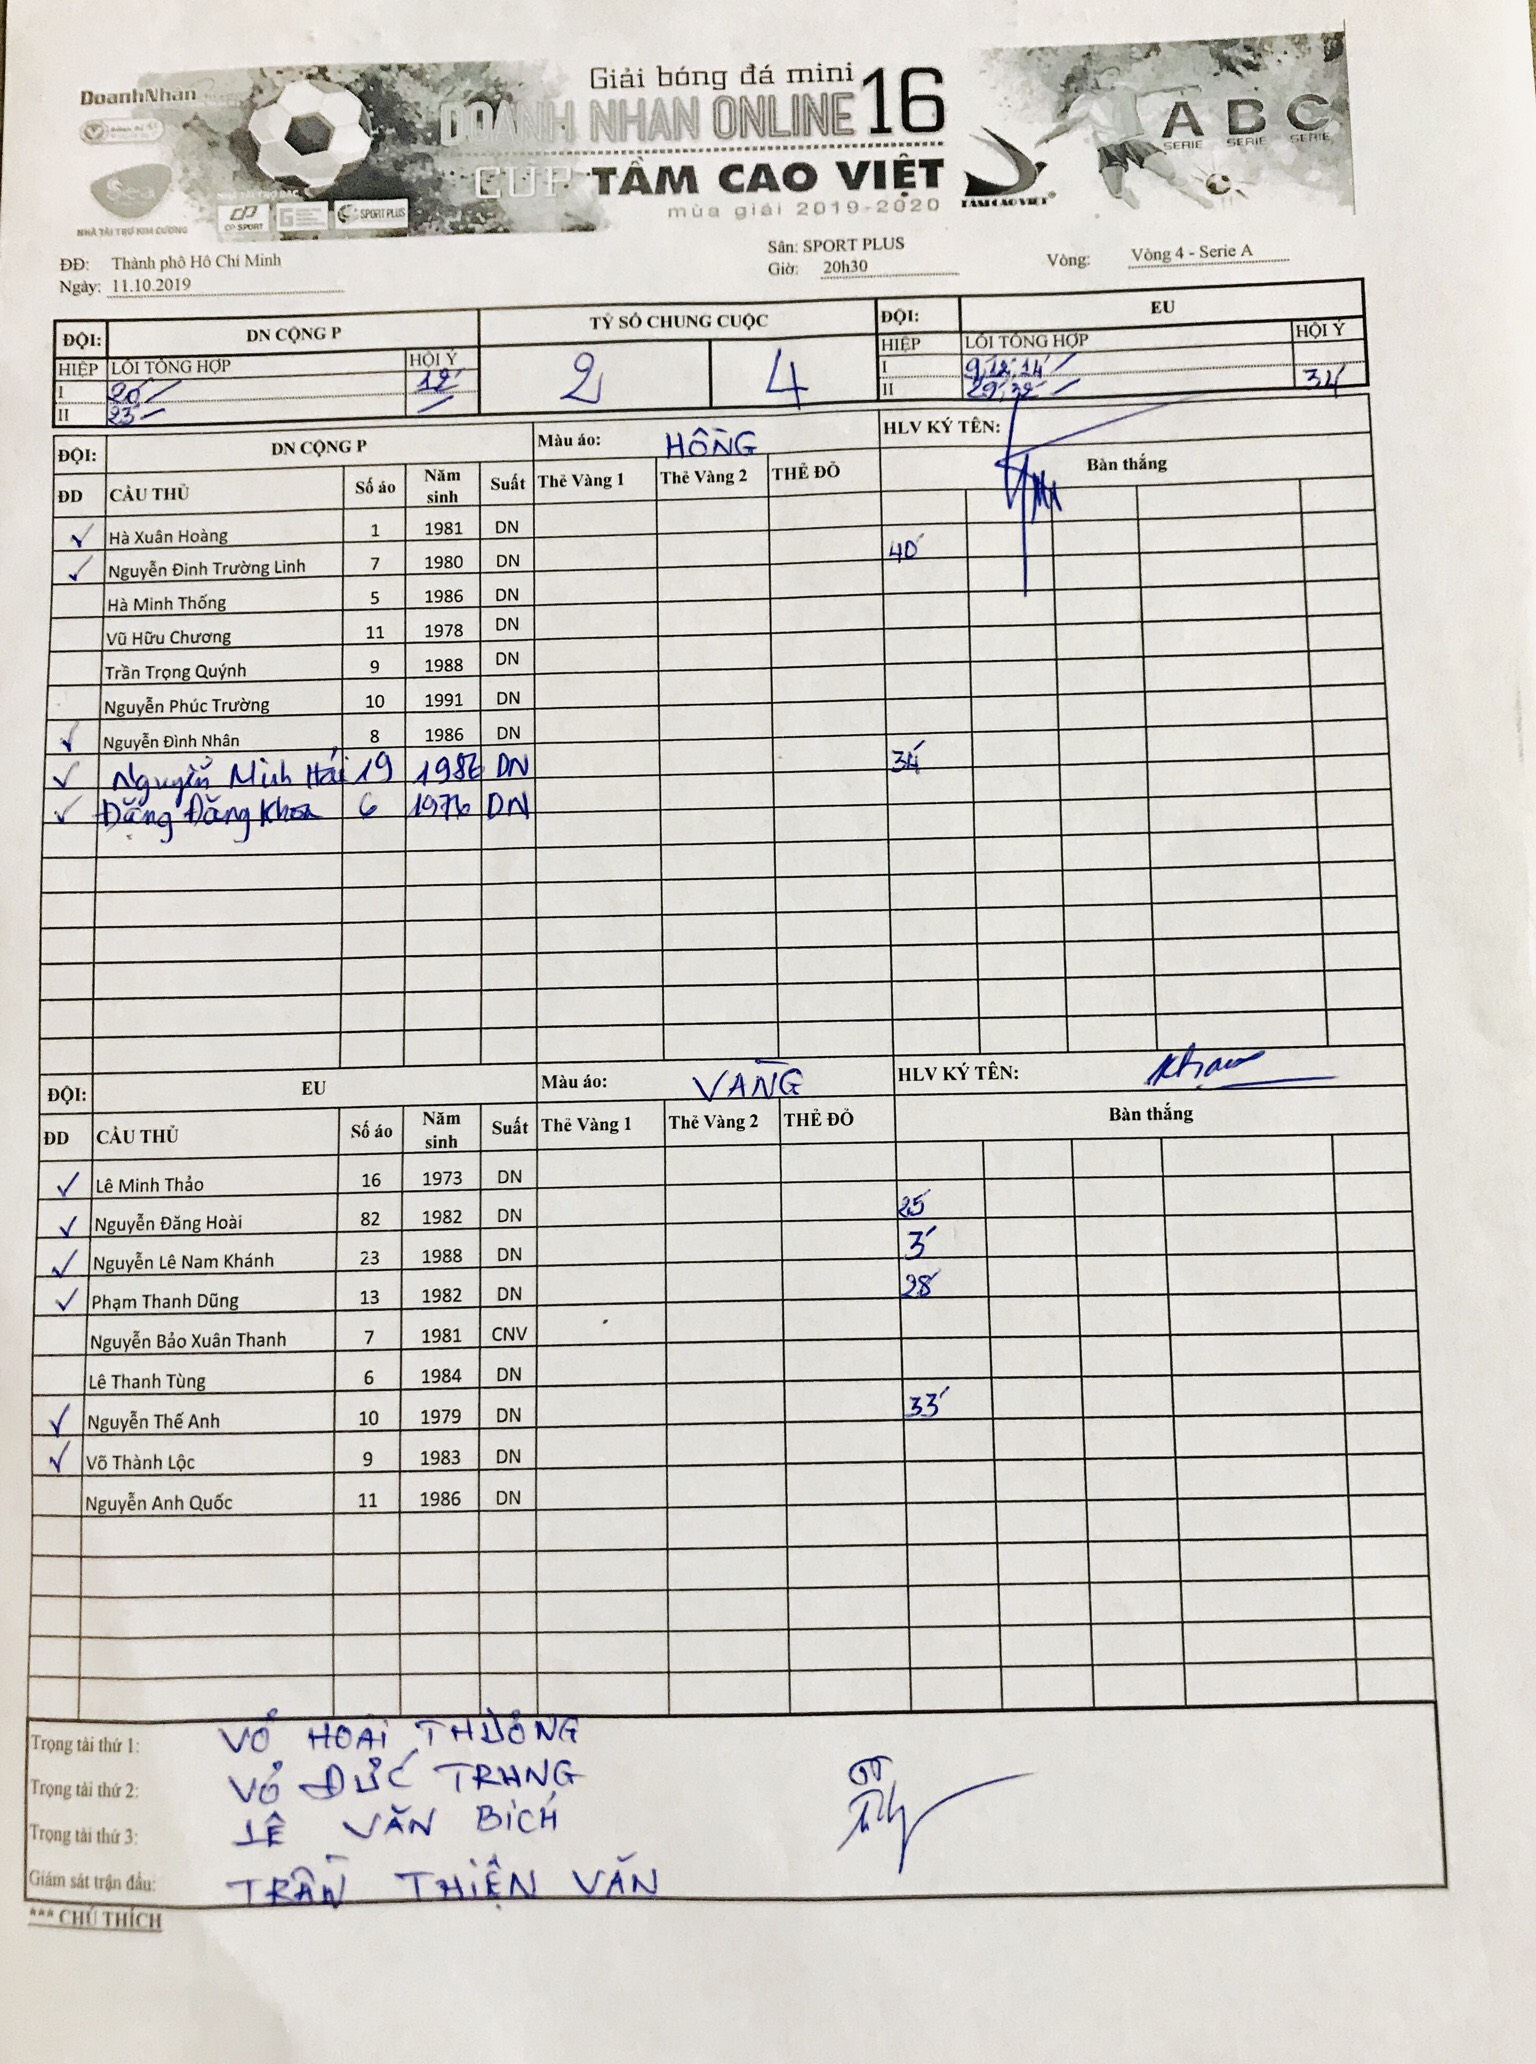 DoanhNhan
Sea
NHÀ TÀI TRỢ KIM CƯƠNG
CP SPORT
SPORT PLUS
Giải bóng đá mini
DOANH NHAN ONLINE 16
CUP TẦM CAO VIỆT
mùa giải 2019-2020
TÂM CAO VIỆT
A B C
SERIE SERIE SERIE
ĐĐ: Thành phô Hô Chí Minh
Ngày: 11.10.2019
Sân: SPORT PLUS
Giờ: 20h30
Vòng: Vòng 4 - Serie A
ĐỘI: DN CỘNG P TỶ SỐ CHUNG CUỘC ĐỘI: EU
HIỆP LỖI TỔNG HỢP HỘI Ý 2 4 HIỆP LỖI TỔNG HỢP HỘI Ý
I 20' 12' I 9' 12' 14'
II 23' II 29' 32' 34'
ĐỘI: DN CỘNG P Màu áo: HỒNG HLV KÝ TÊN:
ĐD CẦU THỦ Số áo Năm sinh Suất Thẻ Vàng 1 Thẻ Vàng 2 THẺ ĐỎ Bàn thắng
✓ Hà Xuân Hoàng 1 1981 DN
✓ Nguyễn Đinh Trường Linh 7 1980 DN 40'
Hà Minh Thống 5 1986 DN
Vũ Hữu Chương 11 1978 DN
Trần Trọng Quýnh 9 1988 DN
Nguyễn Phúc Trường 10 1991 DN
✓ Nguyễn Đình Nhân 8 1986 DN
✓ Nguyễn Minh Hải 19 1986 DN 34'
✓ Đặng Đăng Khoa 6 1976 DN
ĐỘI: EU Màu áo: VÀNG HLV KÝ TÊN:
ĐD CẦU THỦ Số áo Năm sinh Suất Thẻ Vàng 1 Thẻ Vàng 2 THẺ ĐỎ Bàn thắng
✓ Lê Minh Thảo 16 1973 DN
✓ Nguyễn Đăng Hoài 82 1982 DN 25'
✓ Nguyễn Lê Nam Khánh 23 1988 DN 3'
✓ Phạm Thanh Dũng 13 1982 DN 28'
Nguyễn Bảo Xuân Thanh 7 1981 CNV
Lê Thanh Tùng 6 1984 DN
✓ Nguyễn Thế Anh 10 1979 DN 33'
✓ Võ Thành Lộc 9 1983 DN
Nguyễn Anh Quốc 11 1986 DN
Trọng tài thứ 1: VÕ HOÀI THƯƠNG
Trọng tài thứ 2: VÕ ĐỨC TRUNG
Trọng tài thứ 3: LÊ VĂN BÍCH
Giám sát trận đấu: TRẦN THIỆN VĂN
*** CHÚ THÍCH